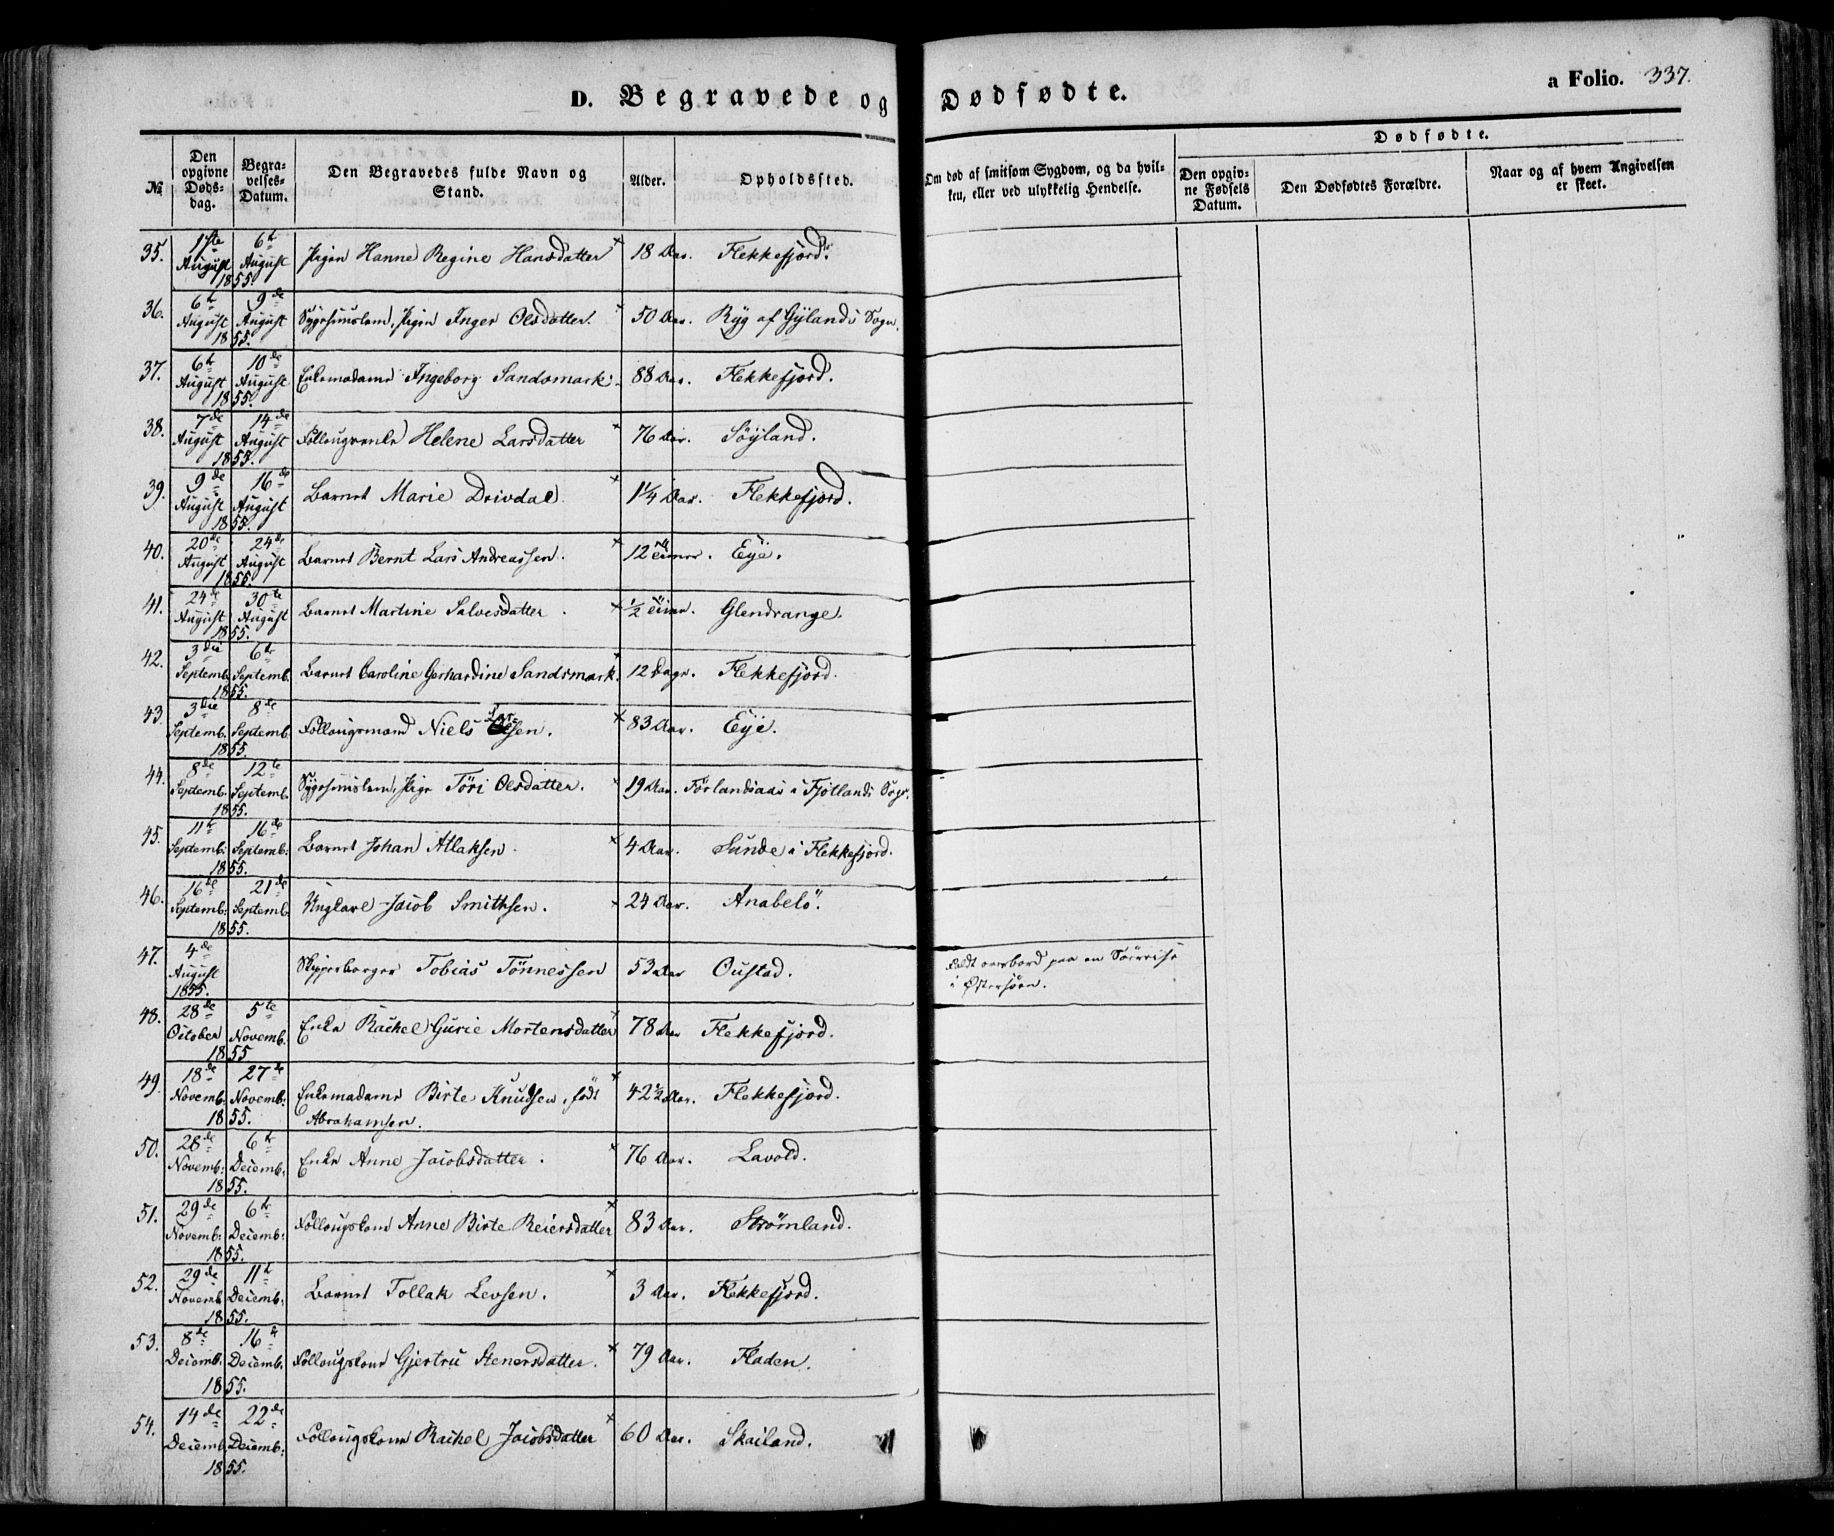 D. Begravede og Dødfødte.
a Folio. 337.
No.
Den opgivne Døds-dag.
Begra-velses-Datum.
Den Begravedes fulde Navn og Stand.
Alder.
Opholdssted.
Om død af smitsom Sygdom, og da hvil-ken, eller ved ulykkelig Hendelse.
Dødfødte.
Den opgiv-ne Fødsels Datum.
Den Dødfødtes Forældre.
Naar og af hvem Angivelsen er skeet.
35. 1ste August 6te August 1855. Pigen Hanne Regine Hansdatter × 18 Aar. Flekkefjord.
36. 6te August 9de August 1855. Sygehuuslem, Pigen Inger Olsdatter. × 50 Aar. Ryg af Gylands Sogn.
37. 6te August 10de August 1855. Enkemadame Ingeborg Sandsmark. 88 Aar. Flekkefjord.
38. 7de August 14de August 1855. Follougsenke Helene Larsdatter × 76 Aar. Söyland.
39. 9de August 16de August 1855. Barnet Marie Drivdal × 1 1/4 Aar. Flekkefjord.
40. 20de August 24de August 1855. Barnet Bernt Lars Andreassen. × 12 Timer. Eye.
41. 24de August 30te August 1855. Barnet Martine Salvesdatter. × 1/2 Time. Glendrange.
42. 3die Septemb. 6te Septemb. 1855. Barnet Caroline Gerhardine Sandsmark. × 12 Dage. Flekkefjord.
43. 3die Septemb. 8de Septemb. 1855. Follougsmand Niels Olsen. × 83 Aar. Eye.
44. 8de Septemb. 12te Septemb. 1855. Sygehuuslem, Pige Töri Olsdatter. × 19 Aar. Förlandsaas i Fjotlands Sogn.
45. 11te Septemb: 16de Septemb: 1855. Barnet Johan Atlaksen. × 4 Aar. Sunde i Flekkefjord.
46. 16de Septemb: 21de Septemb. 1855. Ungkarl Jacob Smithsen. × 24 Aar. Anabelö.
47. 4de August 1855. Skipperborger Tobias Tönnessen 53 Aar Oustad. Faldt overbord paa en Söereise
i Østersöen.
48. 28de October 5te Novemb. 1855 Enke Rachel Gurie Mortensdatter × 78 Aar Flekkefjord.
49. 18de Novemb: 27de Novemb: 1855. Enkemadame Birte Knudsen, født × 42 1/2 Aar. Flekkefjord.
Abrahamsen.
50. 28de Novemb: 6te Decemb: 1855. Enke Anne Jacobsdatter. × 76 Aar. Lavold.
51. 29de Novemb: 6te Decemb: 1855. Follougskone Anne Birte Reiersdatter × 83 Aar. Strømland.
52. 29de Novemb 11te Decemb: 1855. Barnet Tollak Levsen. × 3 Aar. Flekkefjord.
53. 8de Decemb. 16de Decemb: 1855. Follougskone Gjertru Stenersdatter. × 79 Aar. Fladen.
54. 14de Decemb. 22de Decemb: 1855. Follougskone Rachel Jacobsdatter × 60 Aar. Skailand.